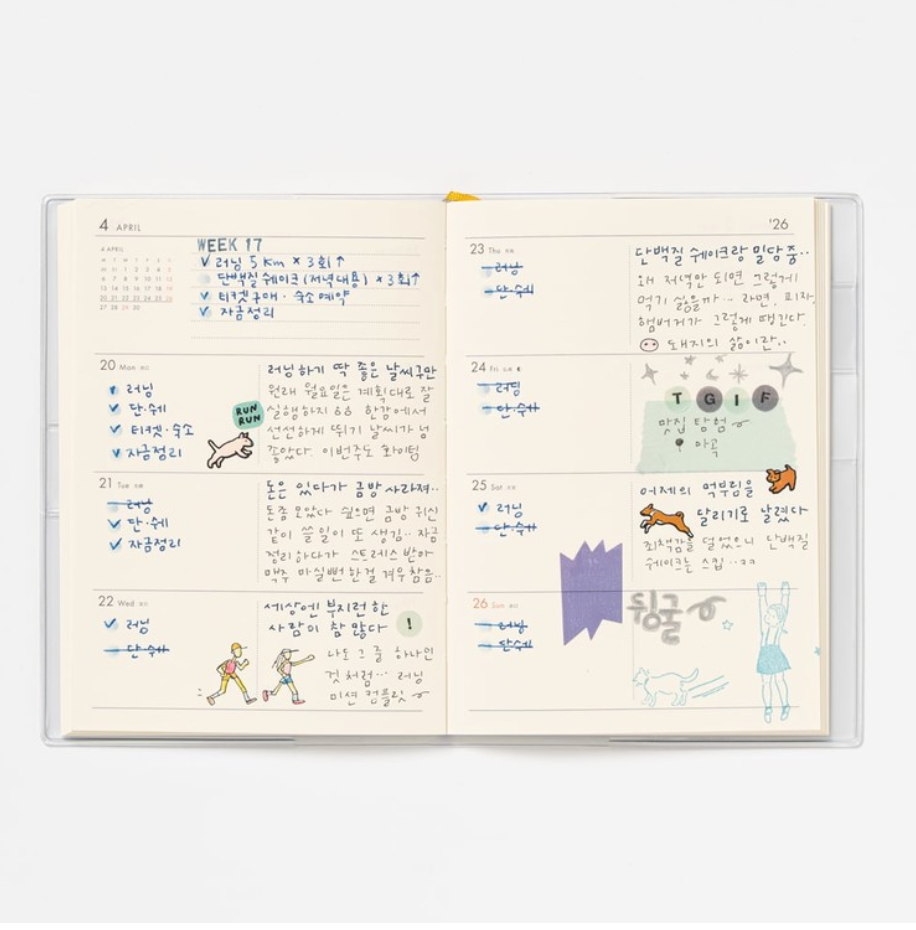 4 APRIL
4 APRIL
WEEK 17
러닝 5 km × 3회↑
단백질 쉐이크(저녁대용) × 3회↑
티켓구매 · 숙소예약
자금정리
20 Mon
러닝
단·쉐
티켓·숙소
자금정리
RUN
RUN
러닝하기 딱 좋은 날씨구만
원래 월요일은 계획대로 잘
실행하지 ㅎㅎ 한강에서
선선하게 뛰기 날씨가 넘
좋았다. 이번주도 화이팅
21 Tue
러닝
단·쉐
자금정리
돈은 있다가 금방 사라져..
돈좀 모았다 싶으면 금방 귀신
같이 쓸 일이 또 생김.. 자금
정리하다가 스트레스 받아
맥주 마실뻔 한걸 겨우 참음..
22 Wed
러닝
단·쉐
세상엔 부지런한
사람이 참 많다
!
나도 그 중 하나인
것처럼... 러닝
미션 컴플릿
'26
23 Thu
러닝
단·쉐
단백질 쉐이크랑 밀당중..
왜 저녁만 되면 그렇게
먹기 싫을까... 라면, 피자,
햄버거가 그렇게 땡긴다.
돼지의 삶이란..
24 Fri
러닝
단·쉐
T G I F
맛집 탐험
마곡
25 Sat
러닝
단·쉐
어제의 먹부림을
달리기로 날렸다
죄책감을 덜었으니 단백질
쉐이크는 스킵..ㅋㅋ
26 Sun
러닝
단·쉐
뒹굴